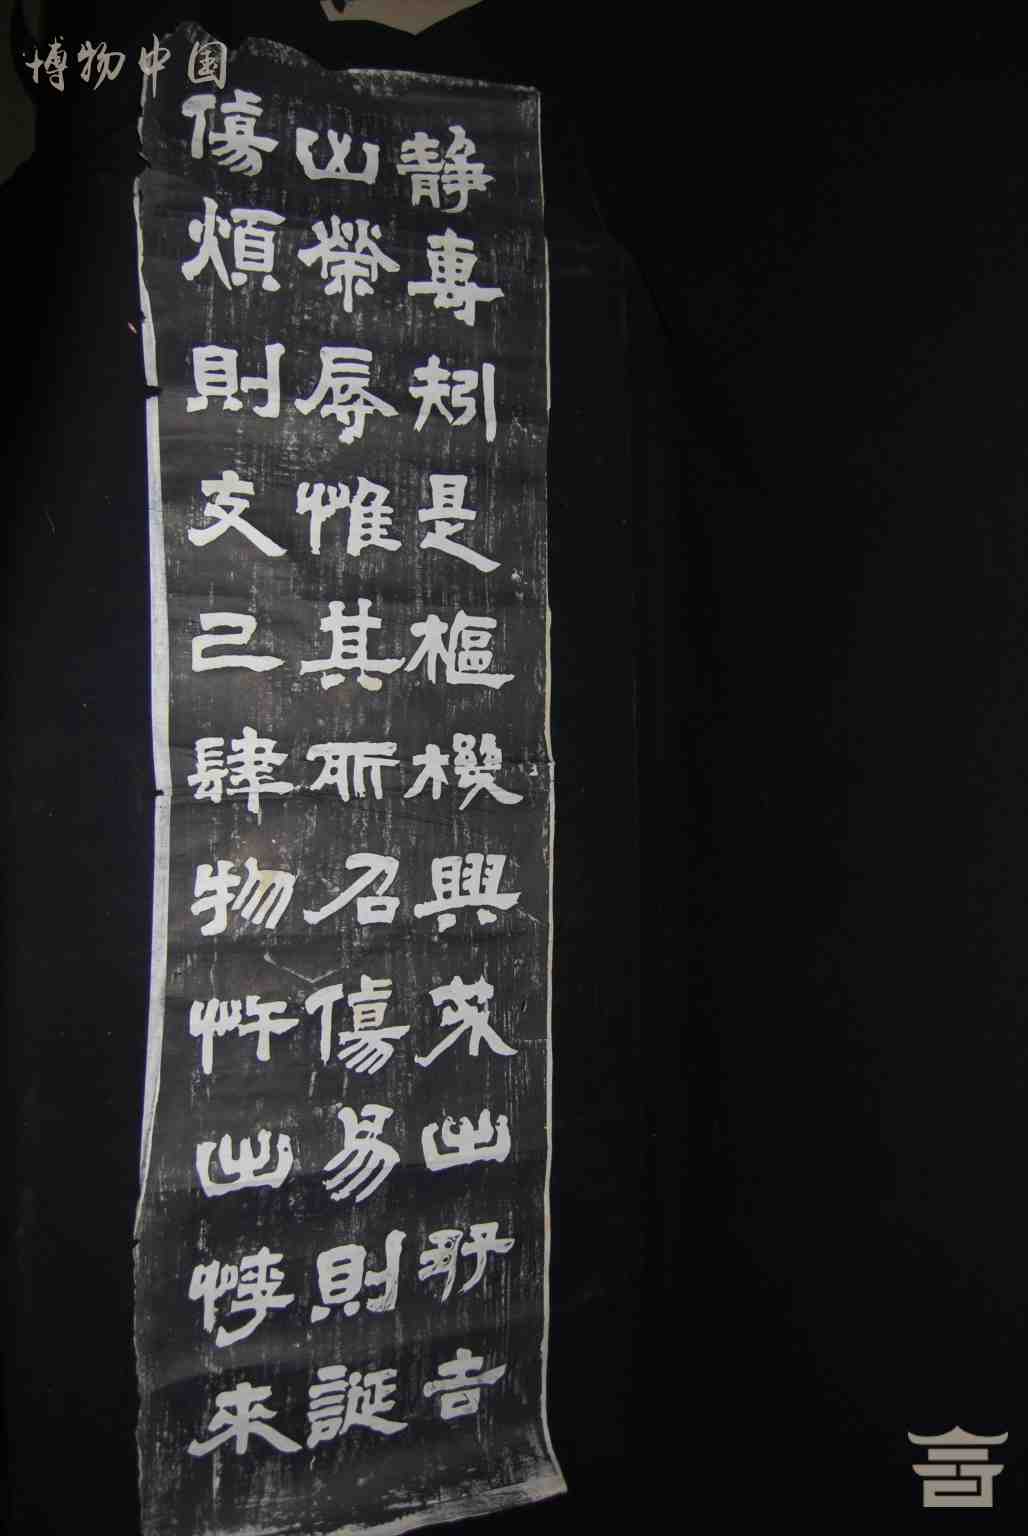 博物中国
靜專矧是樞機興戎出好吉
凶榮辱惟其所召傷易則誕
傷煩則支己肆物忤出悖來